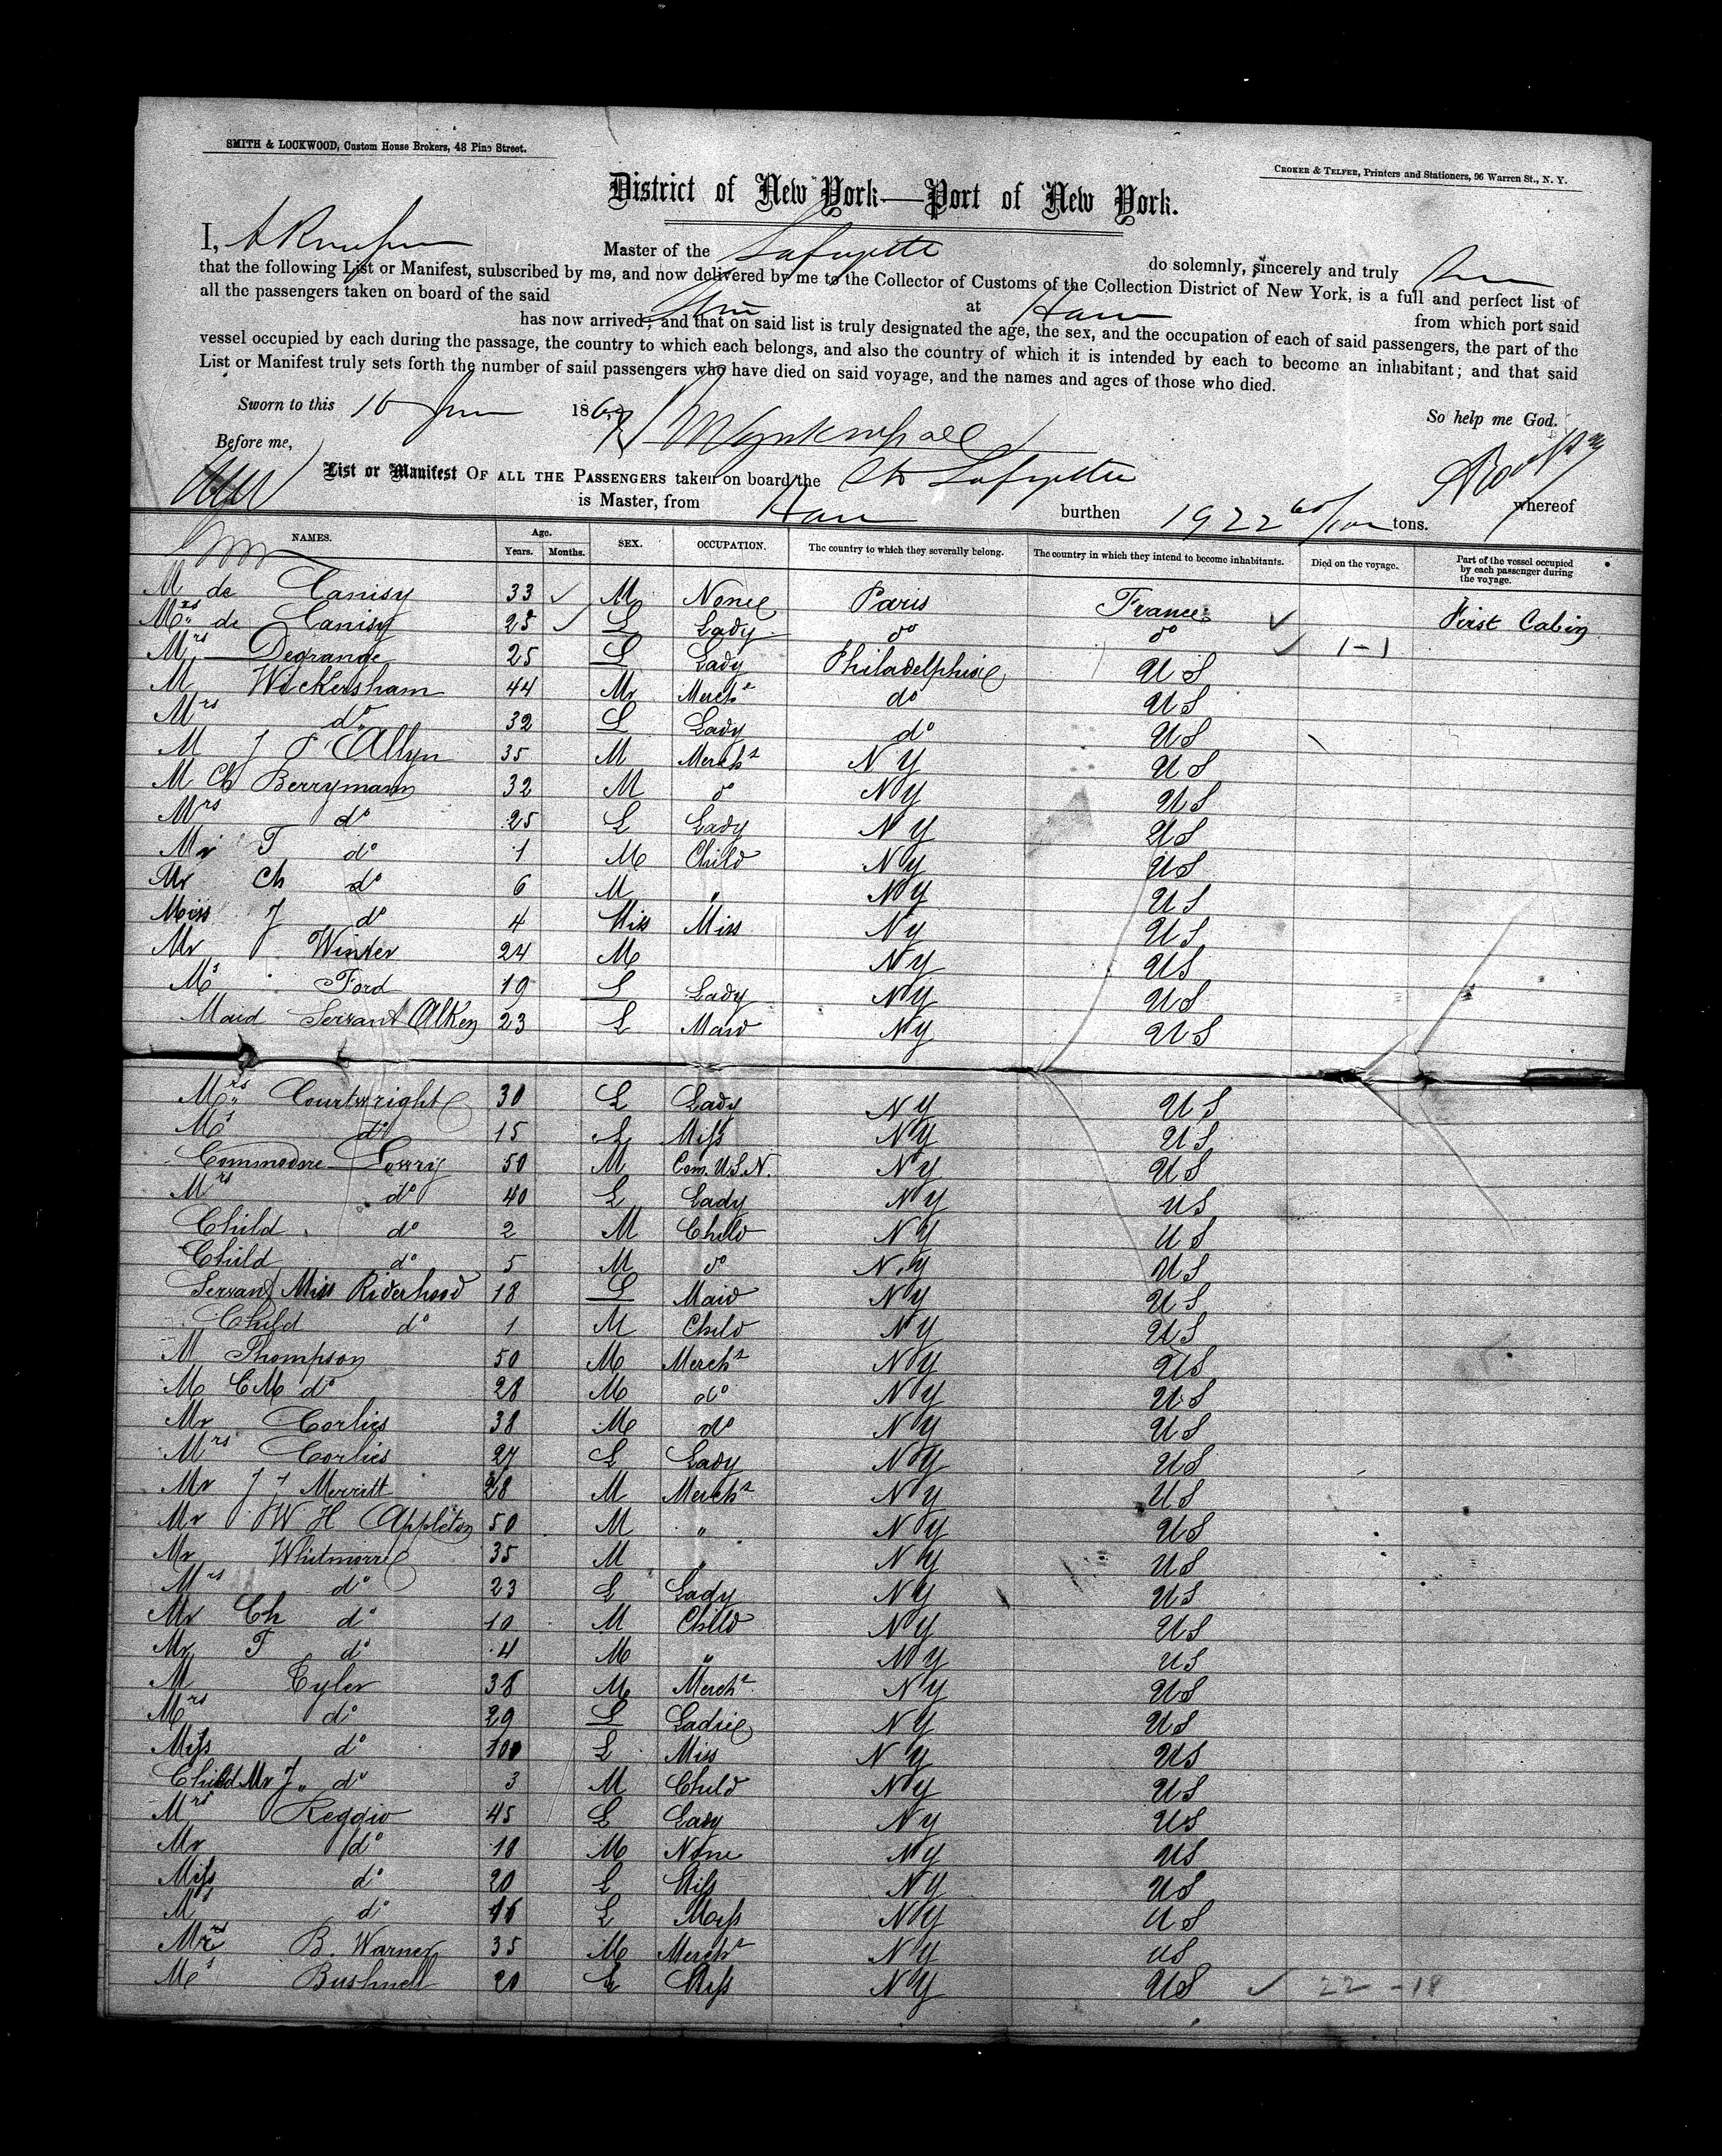 SMITH & LOCKWOOD, Custom House Brokers, 48 Pine Street.
CROKER & TELFER, Printers and Stationers, 96 Warren St., N. Y.
District of New York—Port of New York.
I, Master of the Lafayette do solemnly, sincerely and truly
that the following List or Manifest, subscribed by me, and now delivered by me to the Collector of Customs of the Collection District of New York, is a full and perfect list of
all the passengers taken on board of the said at from which port said
has now arrived; and that on said list is truly designated the age, the sex, and the occupation of each of said passengers, the part of the
vessel occupied by each during the passage, the country to which each belongs, and also the country of which it is intended by each to become an inhabitant; and that said
List or Manifest truly sets forth the number of said passengers who have died on said voyage, and the names and ages of those who died.
Sworn to this 16 186 So help me God.
Before me,
List or Manifest OF ALL THE PASSENGERS taken on board the Lafayette whereof
is Master, from burthen 1922 tons.
NAMES. Age. Years. Months. SEX. OCCUPATION. The country to which they severally belong. The country in which they intend to become inhabitants. Died on the voyage. Part of the vessel occupied by each passenger during the voyage.
M de Canisy 33 M None Paris France First Cabin
Mrs de Canisy 25 L Lady do do
Mrs Degrange 25 L Lady Philadelphie U S 1-1
M Wickersham 44 M Mercht do U S
Mrs do 32 L Lady do U S
M J P Allyn 35 M Mercht N Y U S
M Ch Berrymann 32 M do N Y U S
Mrs do 25 L Lady N Y U S
Mr F do 1 M Child N Y U S
Mr Ch do 6 M " N Y U S
Miss J do 4 Miss Miss N Y U S
Mr Winter 24 M N Y U S
Ms Ford 19 L Lady N Y U S
Maid Servant Alken 23 L Maid N Y U S
Mrs Courtwright 30 L Lady N Y U S
Ms do 15 L Miss N Y U S
Commodore Lowry 50 M Com. U.S.N. N Y U S
Mrs do 40 L Lady N Y U S
Child do 2 M Child N Y U S
Child do 5 M do N Y U S
Servant Miss Riderhood 18 L Maid N Y U S
Child do 1 M Child N Y U S
M Thompson 50 M Mercht N Y U S
M C M do 28 M do N Y U S
Mr Corlies 38 M do N Y U S
Mrs Corlies 27 L Lady N Y U S
Mr J J Merritt 28 M Mercht N Y U S
Mr W H Appleton 50 M " N Y U S
Mr Whitmorre 35 M " N Y U S
Mrs do 23 L Lady N Y U S
Mr Ch do 10 M Child N Y U S
Mr F do 4 M " N Y U S
M Tyler 38 M Mercht N Y U S
Mrs do 29 L Ladie N Y U S
Miss do L Miss N Y U S
Child Mr J " do 3 M Child N Y U S
Mrs Reggio 45 L Lady N Y U S
Mr do 18 M None N Y U S
Miss do 20 L Miss N Y U S
Ms do L Miss N Y U S
Mr B. Warner 35 M Mercht N Y U S
Ms Bushnell 20 L Miss N Y U S 22 - 18